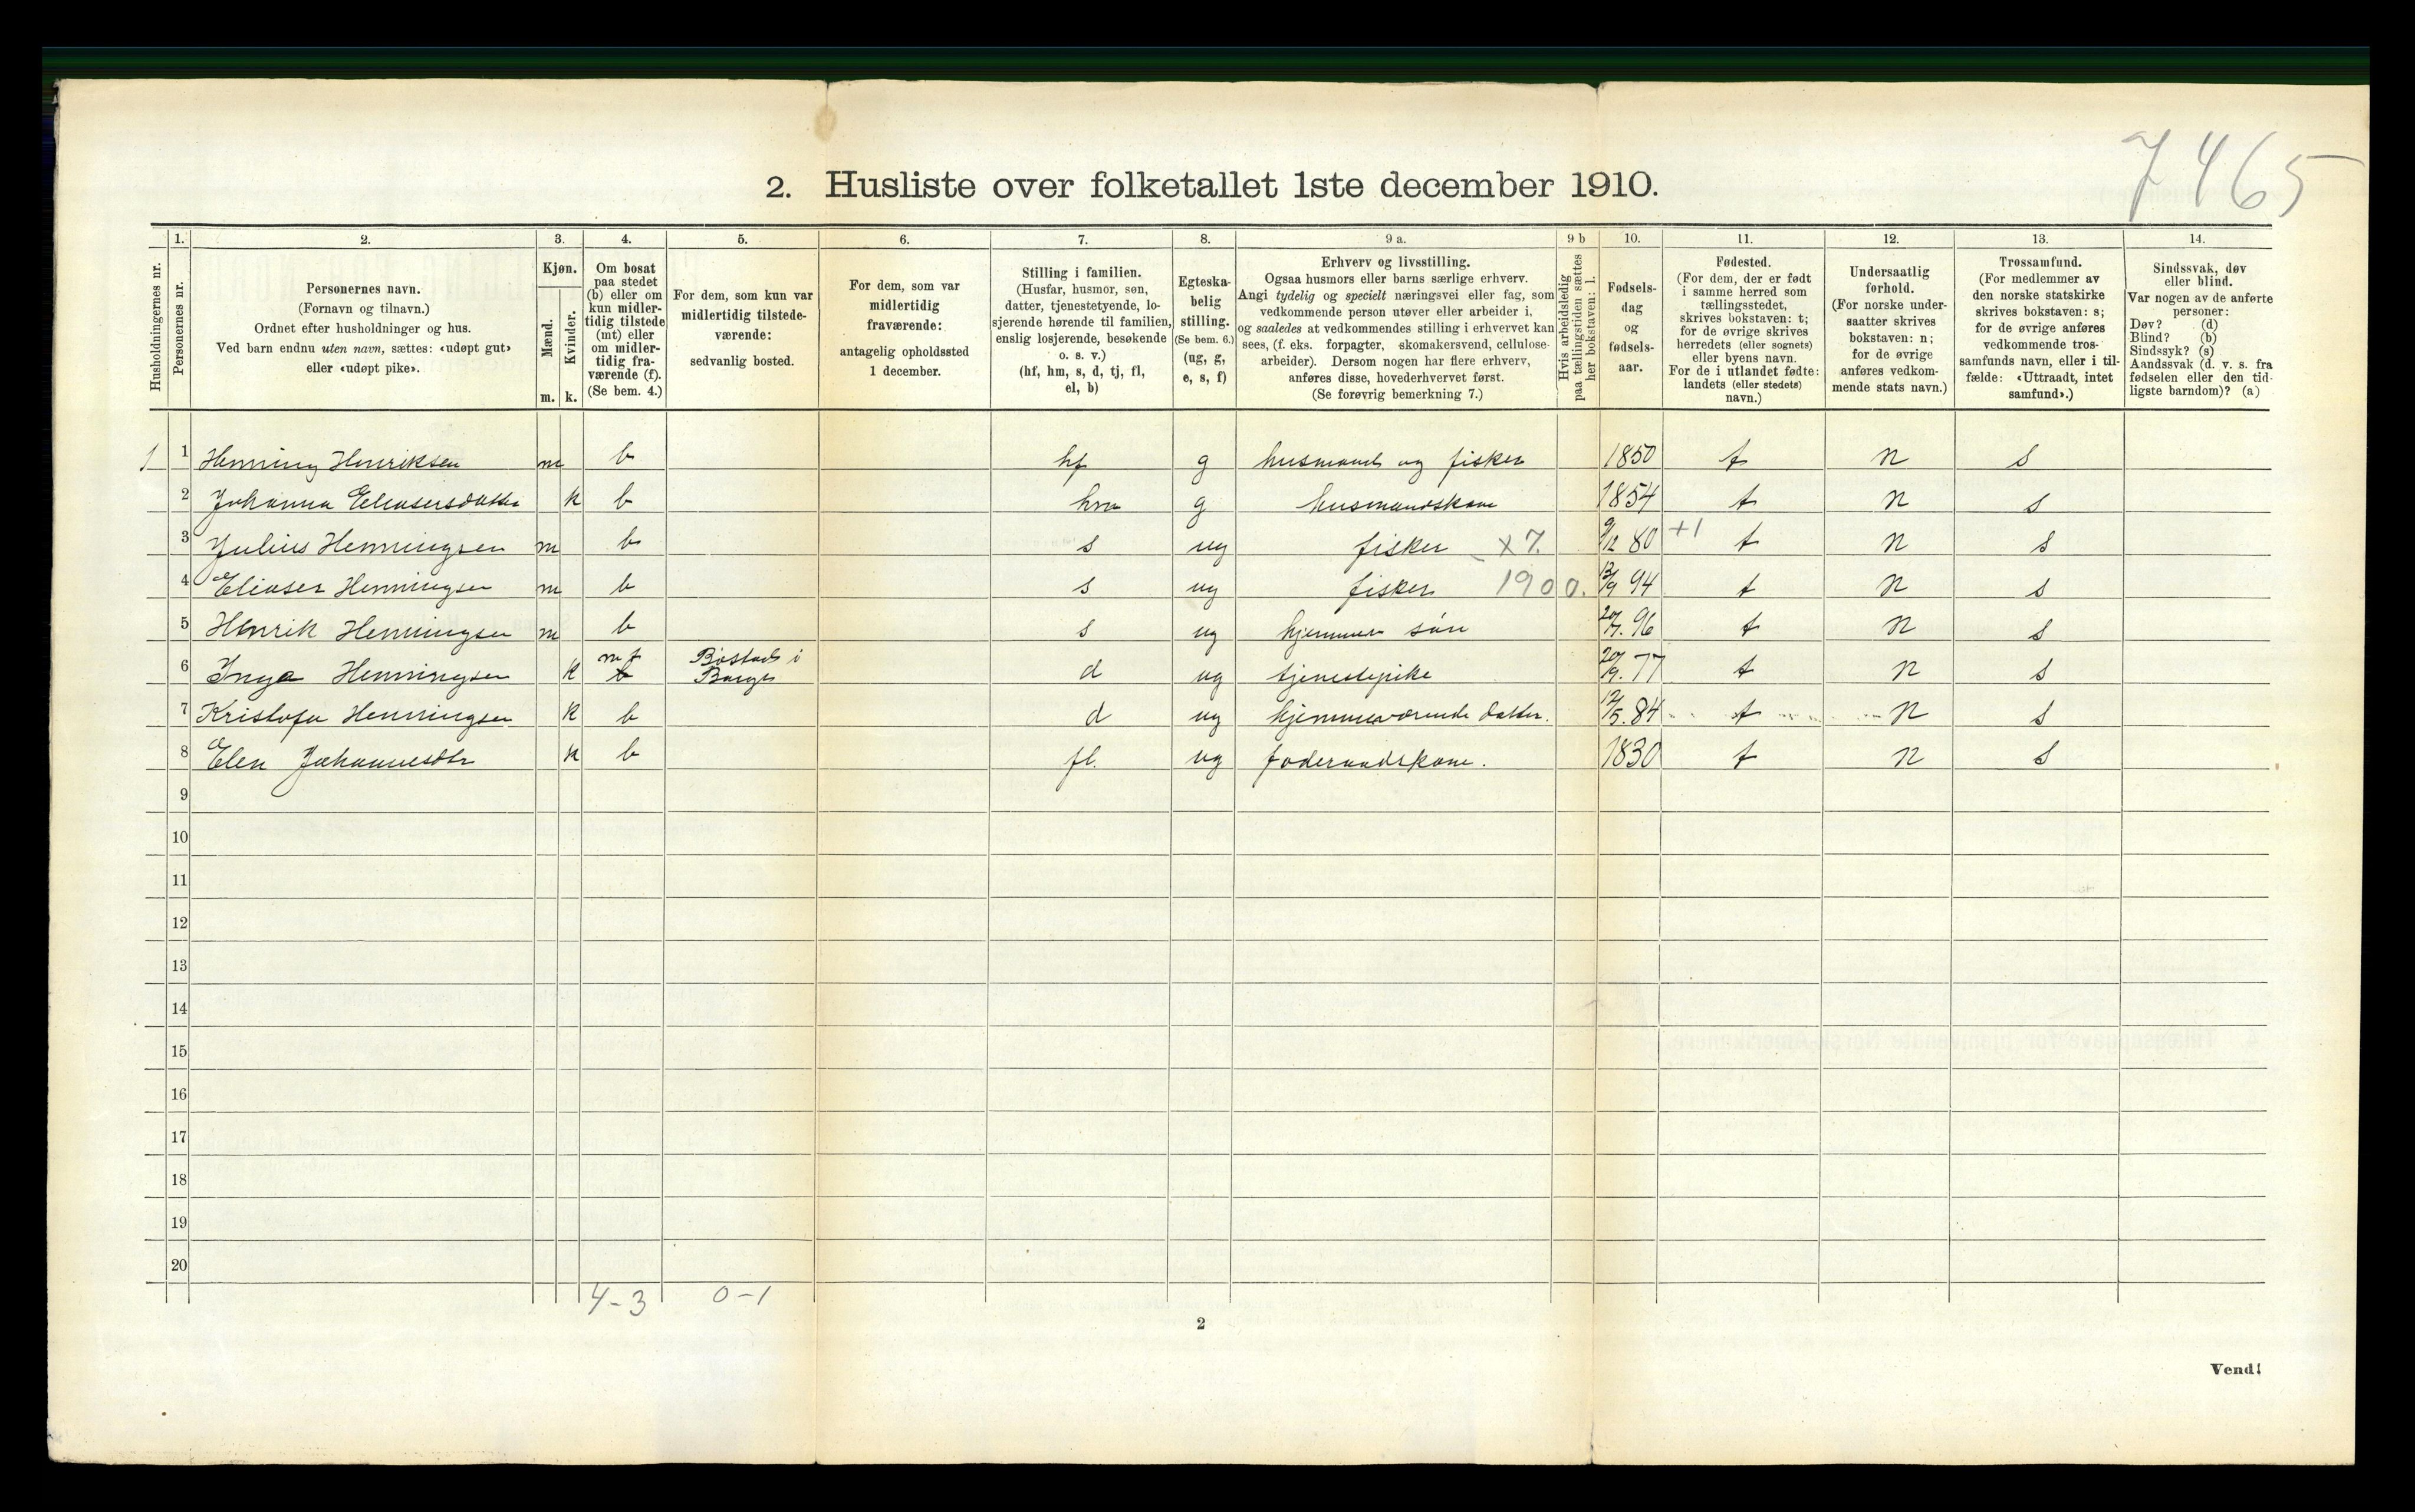 7465
2. Husliste over folketallet 1ste december 1910.
Husholdningernes nr.
1.
Personernes nr.
2.
Personernes navn.
(Fornavn og tilnavn.)
Ordnet efter husholdninger og hus.
Ved barn endnu uten navn, sættes: «udøpt gut»
eller «udøpt pike».
3.
Kjøn.
Mænd.
Kvinder.
m. k.
4.
Om bosat
paa stedet
(b) eller om
kun midler-
tidig tilstede
(mt) eller
om midler-
tidig fra-
værende (f).
(Se bem. 4.)
5.
For dem, som kun var
midlertidig tilstede-
værende:
sedvanlig bosted.
6.
For dem, som var
midlertidig
fraværende:
antagelig opholdssted
1 december.
7.
Stilling i familien.
(Husfar, husmor, søn,
datter, tjenestetyende, lo-
sjerende hørende til familien,
enslig losjerende, besøkende
o. s. v.)
(hf, hm, s, d, tj, fl,
el, b)
8.
Egteska-
belig
stilling.
(Se bem. 6.)
(ug, g,
e, s, f)
9 a.
Erhverv og livsstilling.
Ogsaa husmors eller barns særlige erhverv.
Angi tydelig og specielt næringsvei eller fag, som
vedkommende person utøver eller arbeider i,
og saaledes at vedkommendes stilling i erhvervet kan
sees, (f. eks. forpagter, skomakersvend, cellulose-
arbeider). Dersom nogen har flere erhverv,
anføres disse, hovederhvervet først.
(Se forøvrig bemerkning 7.)
9 b
Hvis arbeidsledig
paa tællingstiden sættes
her bokstaven: l.
10.
Fødsels-
dag
og
fødsels-
aar.
11.
Fødested.
(For dem, der er født
i samme herred som
tællingsstedet,
skrives bokstaven: t;
for de øvrige skrives
herredets (eller sognets)
eller byens navn.
For de i utlandet fødte:
landets (eller stedets)
navn.)
12.
Undersaatlig
forhold.
(For norske under-
saatter skrives
bokstaven: n;
for de øvrige
anføres vedkom-
mende stats navn.)
13.
Trossamfund.
(For medlemmer av
den norske statskirke
skrives bokstaven: s;
for de øvrige anføres
vedkommende tros-
samfunds navn, eller i til-
fælde: «Uttraadt, intet
samfund».)
14.
Sindssvak, døv
eller blind.
Var nogen av de anførte
personer:
Døv? (d)
Blind? (b)
Sindssyk? (s)
Aandssvak (d. v. s. fra
fødselen eller den tid-
ligste barndom)? (a)
1 1 Henning Henriksen m b hf g husmand og fisker 1850 t n s
2 Johanna Eliasersdatter k b hm g husmandskone 1854 t n s
3 Julius Henningsen m b s ug fisker x7. 9/12 80 +1 t n s
4 Eliaser Henningsen m b s ug fisker 1900. 13/9 94 t n s
5 Henrik Henningsen m b s ug hjemmev søn 20/7. 96 t n s
6 Inga Henningsen k mt b Bostad i Borge d ug tjenestepike 20/9. 77 t n s
7 Kristofa Henningsen k b d ug hjemmeværende datter. 12/5. 84 t n s
8 Elen Johannesdtr k b fl. ug foderaadskone. 1830 t n s
9
10
11
12
13
14
15
16
17
18
19
20
4-3 0-1
2
Vend!